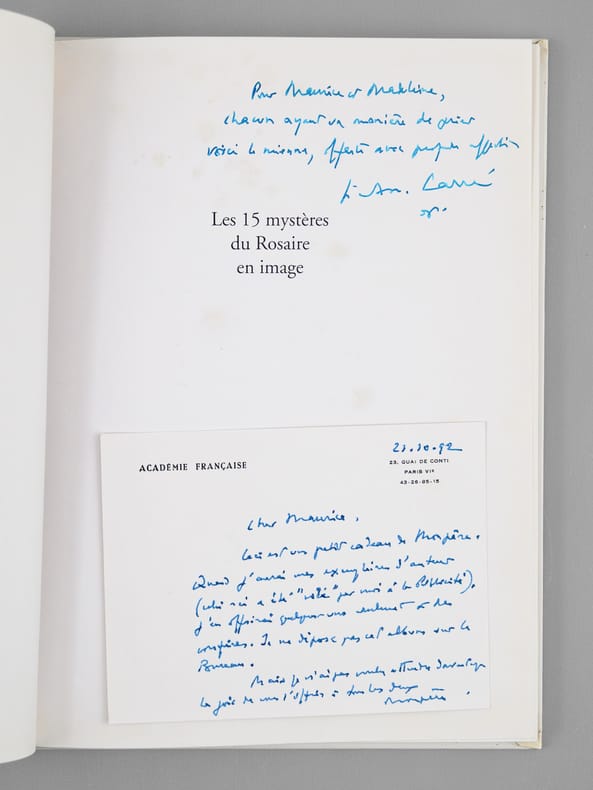 Pour Maurice et Madeleine,
chacun ayant sa manière de prier
voici la mienne, offerte avec profonde affection
f. Am. Carré
op.
Les 15 mystères
du Rosaire
en image
ACADÉMIE FRANÇAISE
23.10.92
23, QUAI DE CONTI
PARIS VIe
43-26-85-15
Cher Maurice,
Ceci est un petit cadeau de
Quand j'aurai mes exemplaires d'auteur
(celui-ci a été "volé" par moi à la Publicité).
j'en offrirai quelques-uns seulement à des
confrères. Je ne dépose pas cet album sur le
Bureau.
Mais je n'ai pas voulu attendre davantage
la joie de vous l'offrir à tous les deux